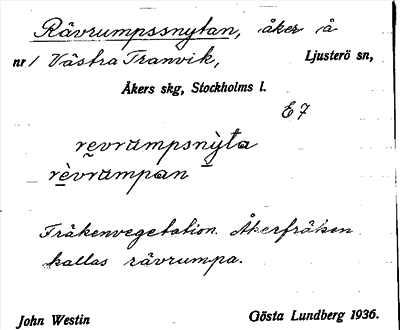 Rävrumpssnytan, åker å
nr 1 Västra Tranvik, Ljusterö sn,
Åkers skg, Stockholms l.
E7
revrumpsnỳta
rèvrumpan
Fräkenvegetation. Åkerfräken
kallas rävrumpa.
John Westin Gösta Lundberg 1936.